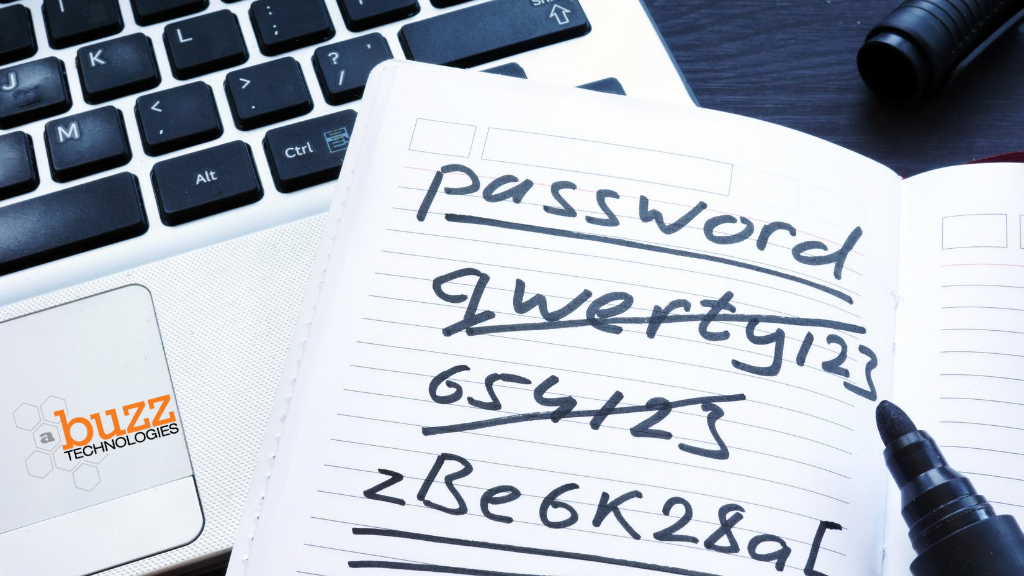 Sh
J
K
L
:
;
?
/
>
.
<
,
M
Ctrl
Alt
password
qwerty123
654123
zBe6K28a[
a buzz
TECHNOLOGIES